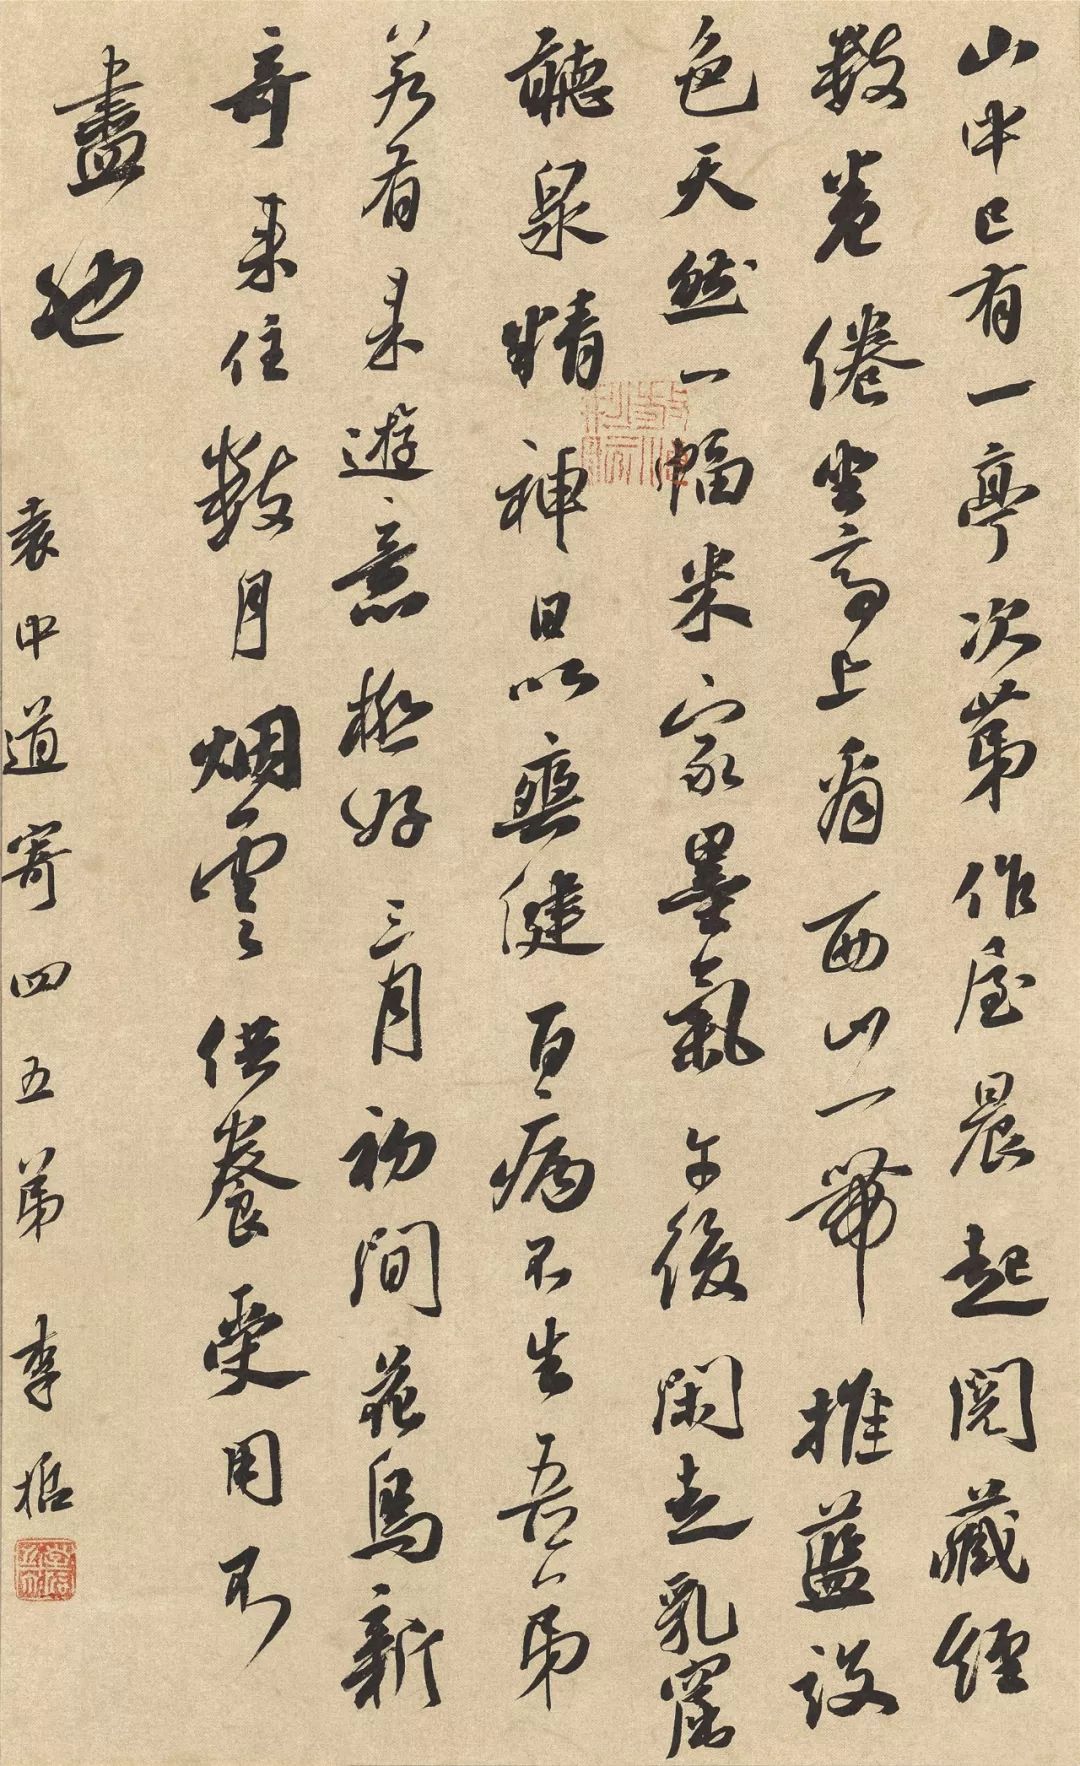 山中已有一亭次第作屋晨起閱藏經
數卷倦坐亭上看西山一帶推藍設
色天然一幅米家墨氣午後閑走乳窟
聽泉精神日以爽健百病不生吾弟
若有來遊意極好三月初間花鳥新
奇來住數月烟雲供養受用不
盡也
袁中道寄四五弟 李振